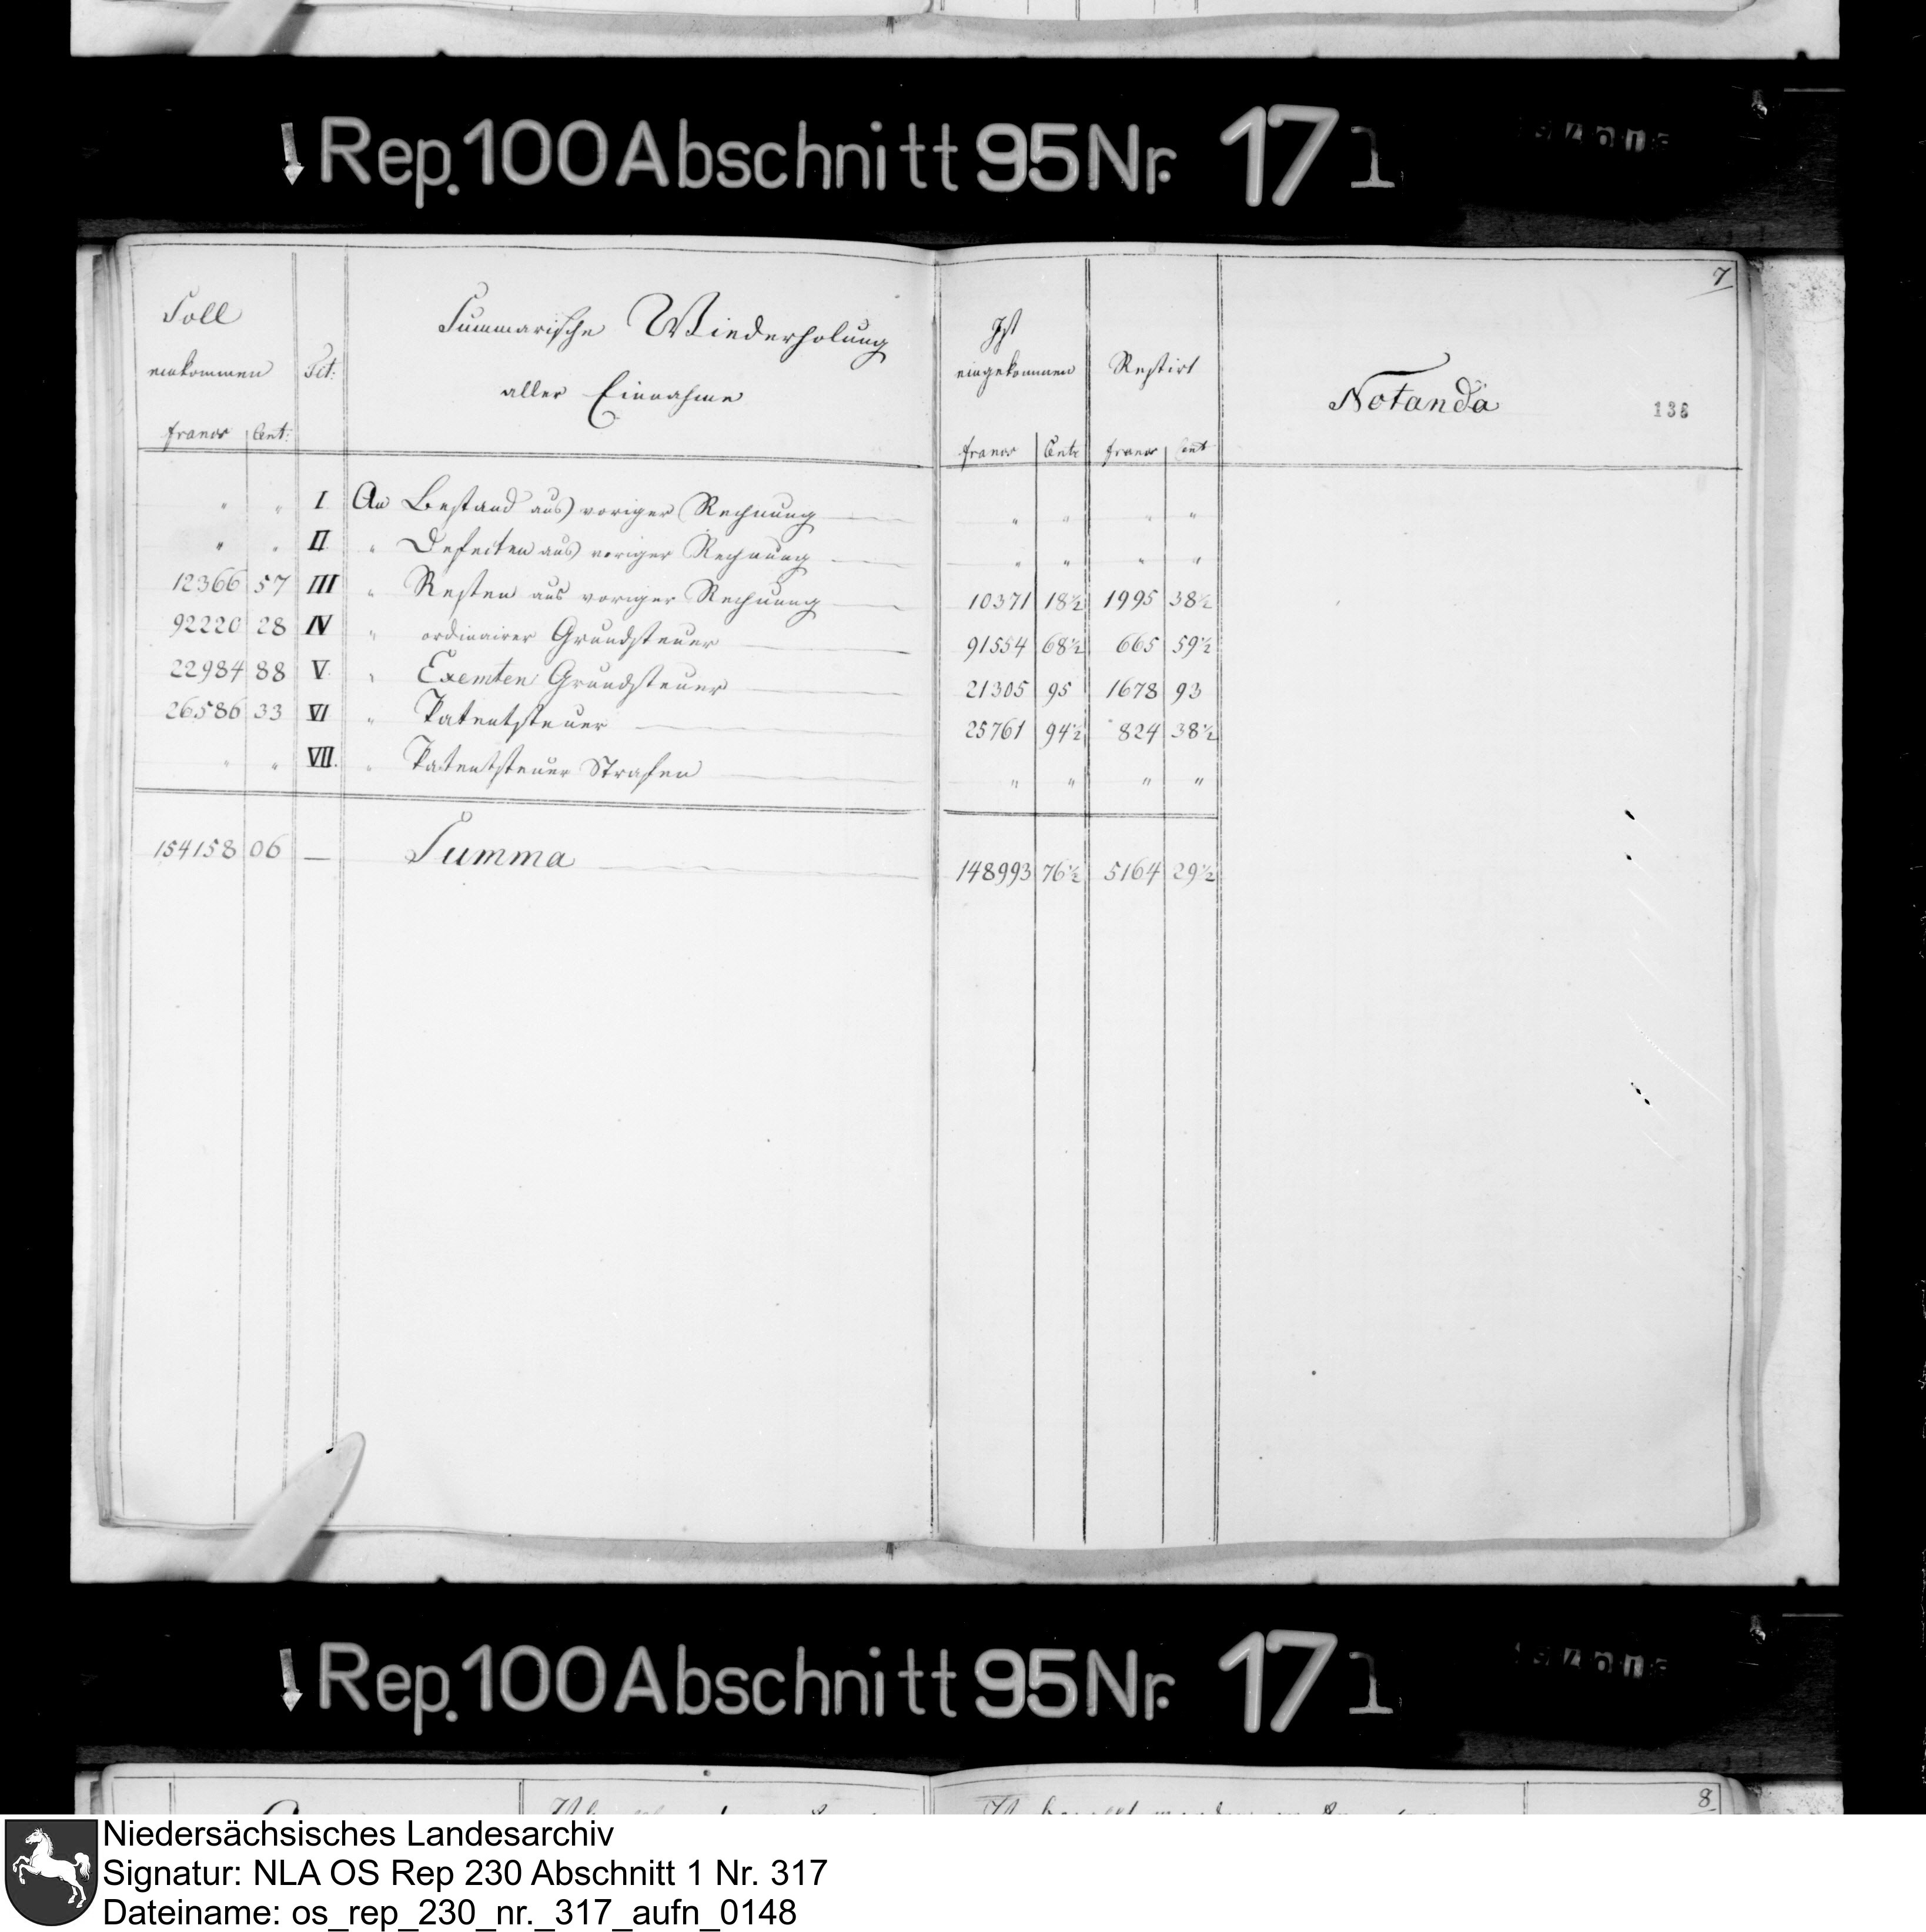 Rep. 100 Abschnitt 95 Nr. 171
7
Soll
einkommen
francs Cent:
Tit:
Summarische Wiederholung
aller Einnahme
Ist
eingekommen
francs Cent
Restirt
francs Cent
Notanda
136
" " I An Bestand aus voriger Rechnung " " " "
" " II " Defecten aus voriger Rechnung " " " "
12366 57 III " Resten aus voriger Rechnung 10371 18½ 1995 38½
92220 28 IV " ordinairer Grundsteuer 91554 68½ 665 59½
22984 88 V " Exemten Grundsteuer 21305 95 1678 93
26586 33 VI " Patentsteuer 25761 94½ 824 38½
" " VII. " Patentsteuer Strafen " " " "
154158 06 — Summa 148993 76½ 5164 29½
Rep. 100 Abschnitt 95 Nr. 171
8
Niedersächsisches Landesarchiv
Signatur: NLA OS Rep 230 Abschnitt 1 Nr. 317
Dateiname: os_rep_230_nr._317_aufn_0148